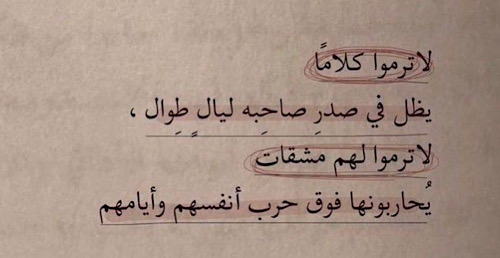 لا ترموا كلامًا
يظل في صدرِ صاحبِه ليالٍ طِوال ،
لا ترموا لهم مشقات
يُحاربونها فوق حرب أنفسهم وأيامهم